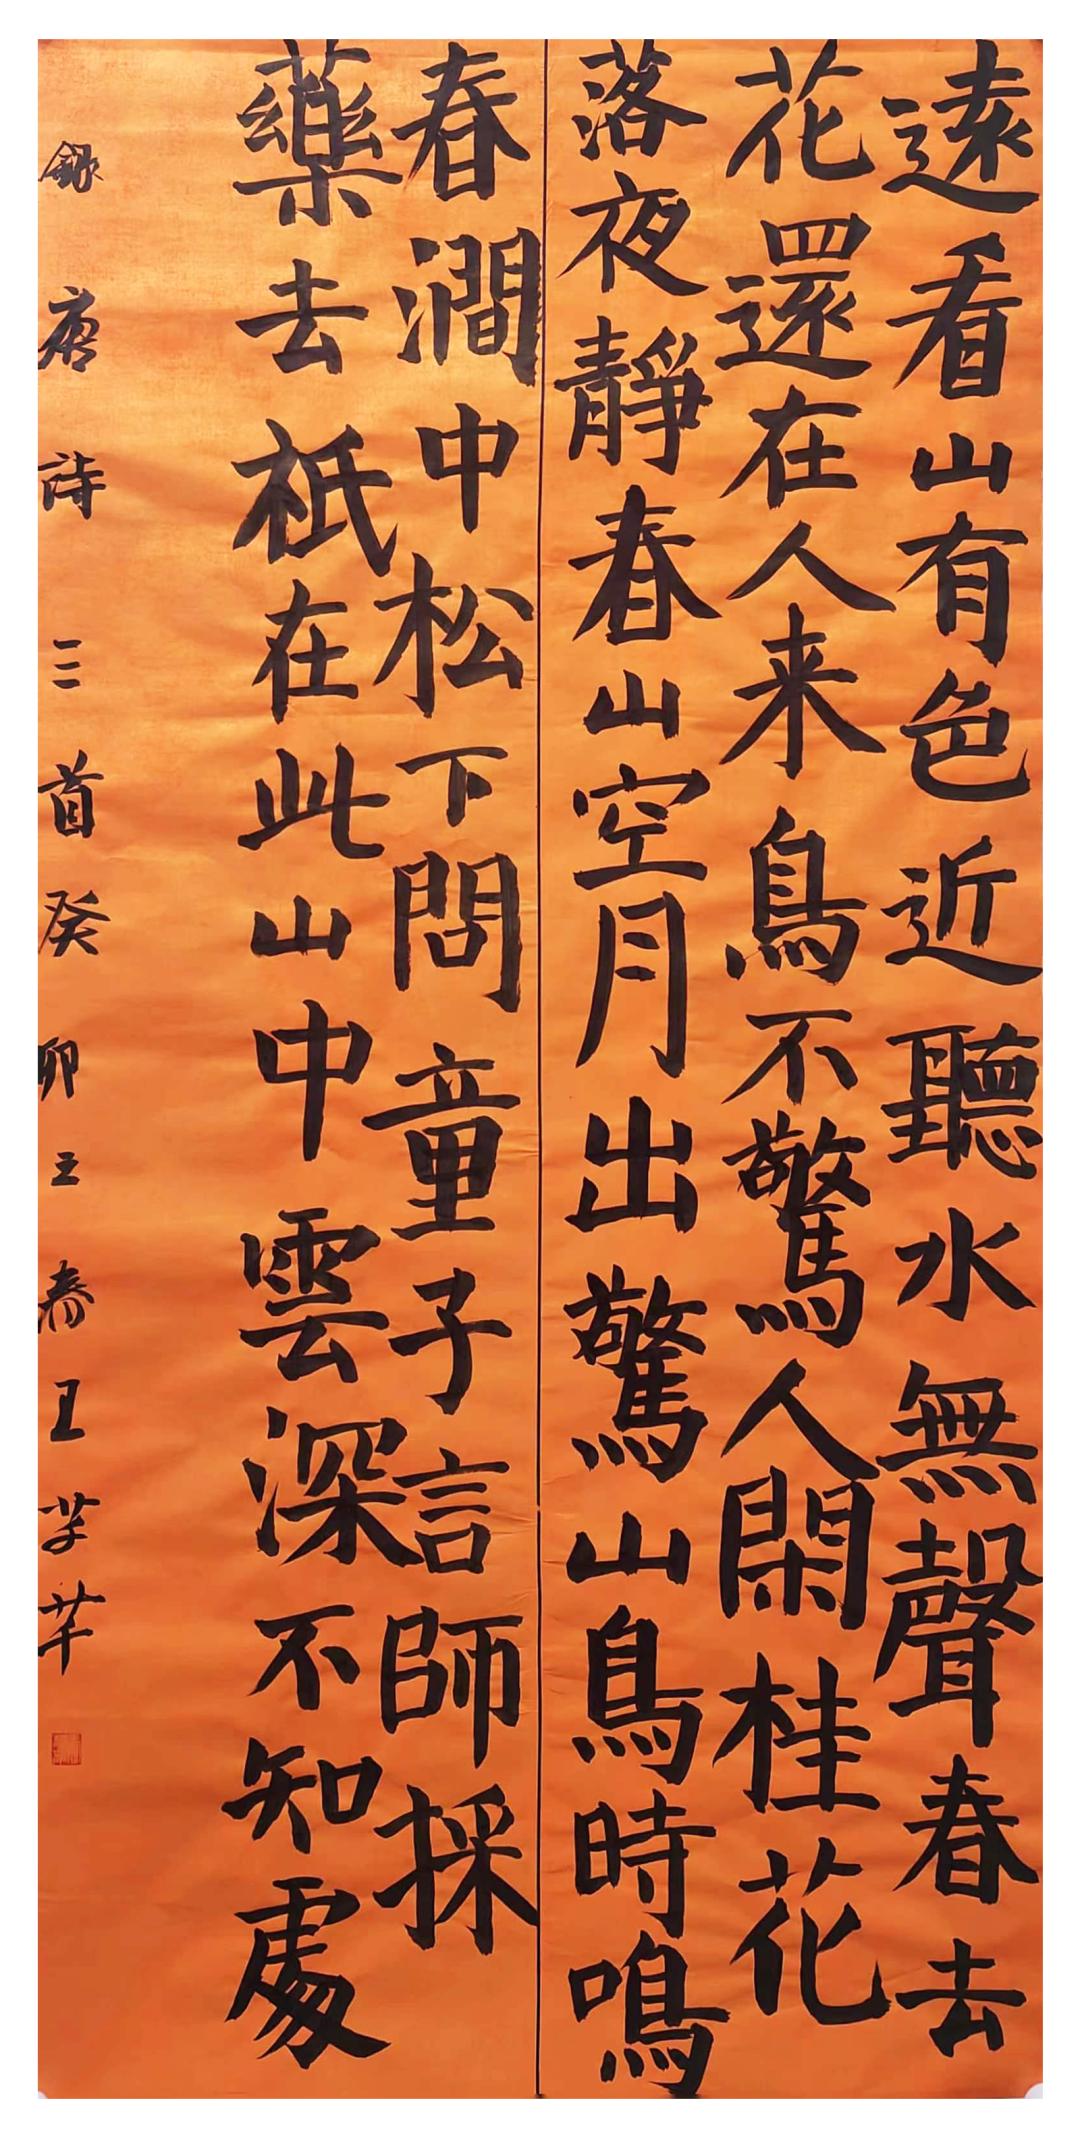 遠看山有色近聽水無聲春去
花還在人来鳥不驚人閑桂花
落夜靜春山空月出驚山鳥時鳴
春澗中松下問童子言師採
藥去祇在此山中雲深不知處
錄唐詩三首癸卯立春王